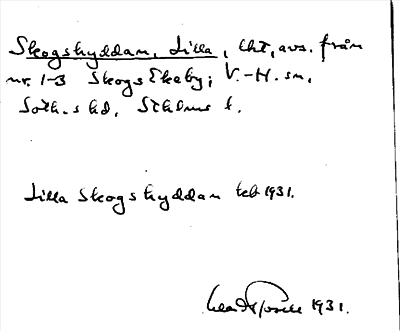 Skogshyddan, Lilla, lht, avs. från
nr. 1-3 Skogs Ekeby; V.-H. sn,
Soth.s hd, Sthlms l.
Lilla Skogshyddan teb 1931.
1931.